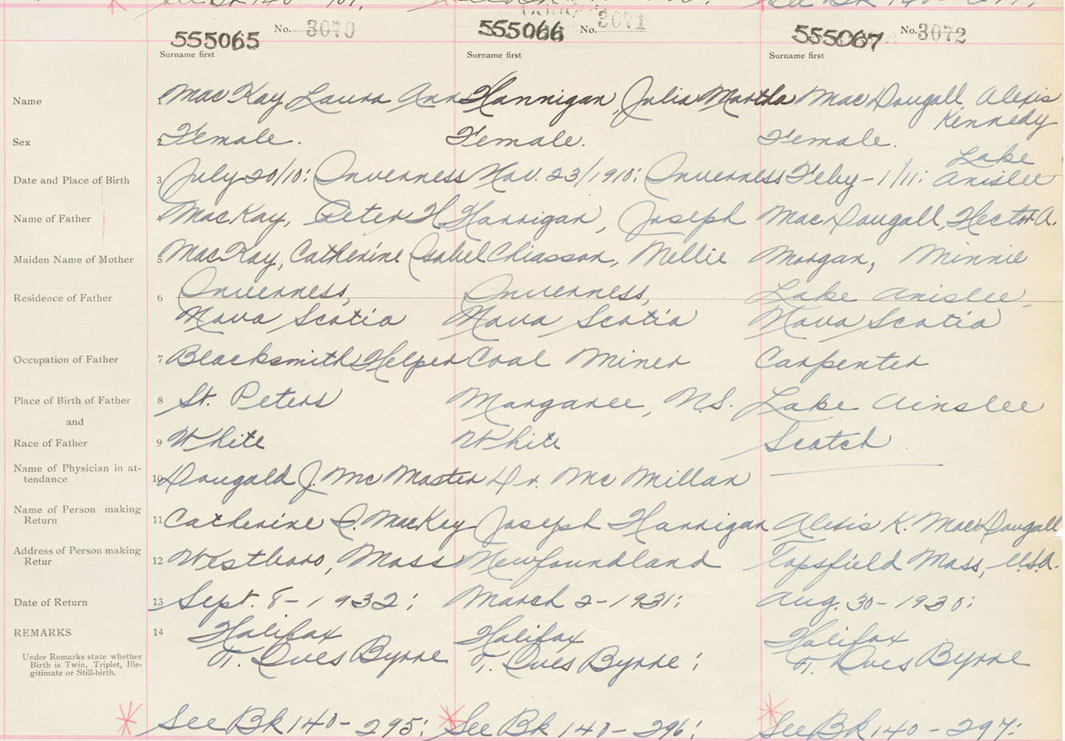 555065 No. 3070 555066 No. 3071 555067 No. 3072
Surname first Surname first Surname first
Name MacKay Laura Ann Hannigan, Julia Martha MacDougall, Alexis Kennedy
Sex Female. Female. Female.
Date and Place of Birth 3 July-20/10: Inverness Nov. 23/1910: Inverness Feby-1/11: Lake Anislee
Name of Father MacKay, Peter H. Hannigan, Joseph MacDougall, Hector A.
Maiden Name of Mother 5 MacKay, Catherine Isabel Chiasson, Nellie Morgan, Minnie
Residence of Father 6 Inverness, Inverness, Lake Anislee
Nova Scotia Nova Scotia Nova Scotia
Occupation of Father 7 Blacksmiths Helper Coal Miner Carpenter
Place of Birth of Father 8 St. Peters Margaree, N.S. Lake Ainslee
and
Race of Father 9 White White Scotch
Name of Physician in at-
tendance 10 Dougald J. McMaster Dr. McMillan
Name of Person making
Return 11 Catherine I. MacKey Joseph Hannigan Alexis K. MacDougall
Address of Person making
Retur 12 Westboro, Mass Newfoundland Topsfield Mass, U.S.A.
Date of Return 13 Sept. 8-1932: March 2-1931: Aug. 30-1930:
REMARKS 14 Halifax Halifax Halifax
T. Ives Byrne T. Ives Byrne: T. Ives Byrne
Under Remarks state whether
Birth is Twin, Triplet, Ille-
gitimate or Still-birth.
See Bk 140-295: See Bk 140-296: See Bk 140-297: